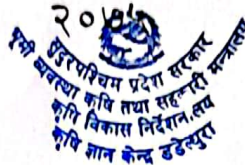 सुदूरपश्चिम प्रदेश सरकार
भूमी व्यवस्था कृषि तथा सहकारी मन्त्रालय
कृषि विकास निर्देशनालय
कृषि ज्ञान केन्द्र डडेल्धुरा